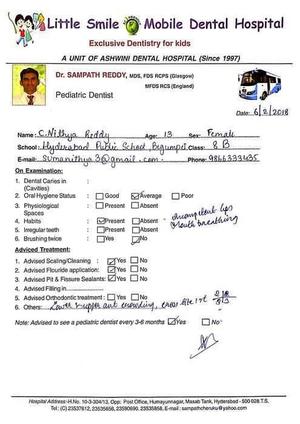 Little Smile Mobile Dental Hospital
Exclusive Dentistry for kids
A UNIT OF ASHWINI DENTAL HOSPITAL (Since 1997)
Dr. SAMPATH REDDY, MDS, FDS RCPS (Glasgow)
MFDS RCS (England)
Pediatric Dentist
Date: 6/2/2018
Name: C. Nithya Reddy Age: 13 Sex: Female
School: Hyderabad Public School, Begumpet Class: 8 B
E-mail: sumanithya3@gmail.com Phone: 9866333435
On Examination:
1. Dental Caries in :
(Cavities)
2. Oral Hygiene Status : Good Average Poor
3. Physiological : Present Absent
Spaces
4. Habits : Present Absent incompetent lips
5. Irregular teeth : Present Absent mouth breathing
6. Brushing twice : Yes No
Adviced Treatment:
1. Advised Scaling/Cleaning : Yes No
2. Advised Flouride application: Yes No
3. Advised Pit & Fissure Sealants: Yes No
4. Advised Filling in
5. Advised Orthodontic treatment : Yes No
6. Others: Lower & upper ant crowding, cross bite
Note: Advised to see a pediatric dentist every 3-6 months Yes No
Hospital Address:-H.No. 10-3-304/13, Opp: Post Office, Humayunnagar, Masab Tank, Hyderabad - 500 028 T.S.
Tel: (C) 23537612, 23535858, 23590690, 23535858. E-mail : sampathcheruku@yahoo.com